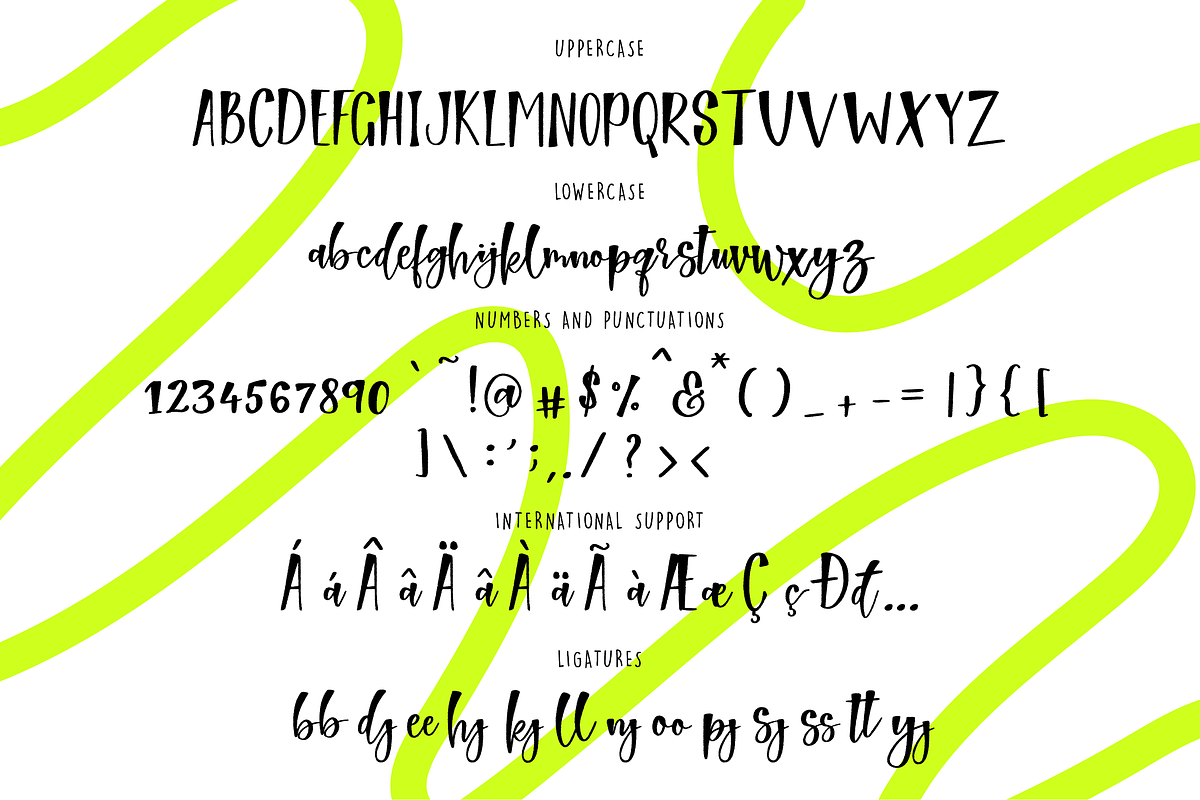 UPPERCASE
ABCDEFGHIJKLMNOPQRSTUVWXYZ
LOWERCASE
abcdefghijklmnopqrstuvwxyz
NUMBERS AND PUNCTUATIONS
1234567890 ` ~ ! @ # $ % ^ & * ( ) _ + - = | } { [
] \ : ' ; , . / ? > <
INTERNATIONAL SUPPORT
Á á Â â Ä â À ä Ã à Æ æ Ç ç Đ đ ...
LIGATURES
bb dj ee hj kj ll nj oo pj sj ss tt yj